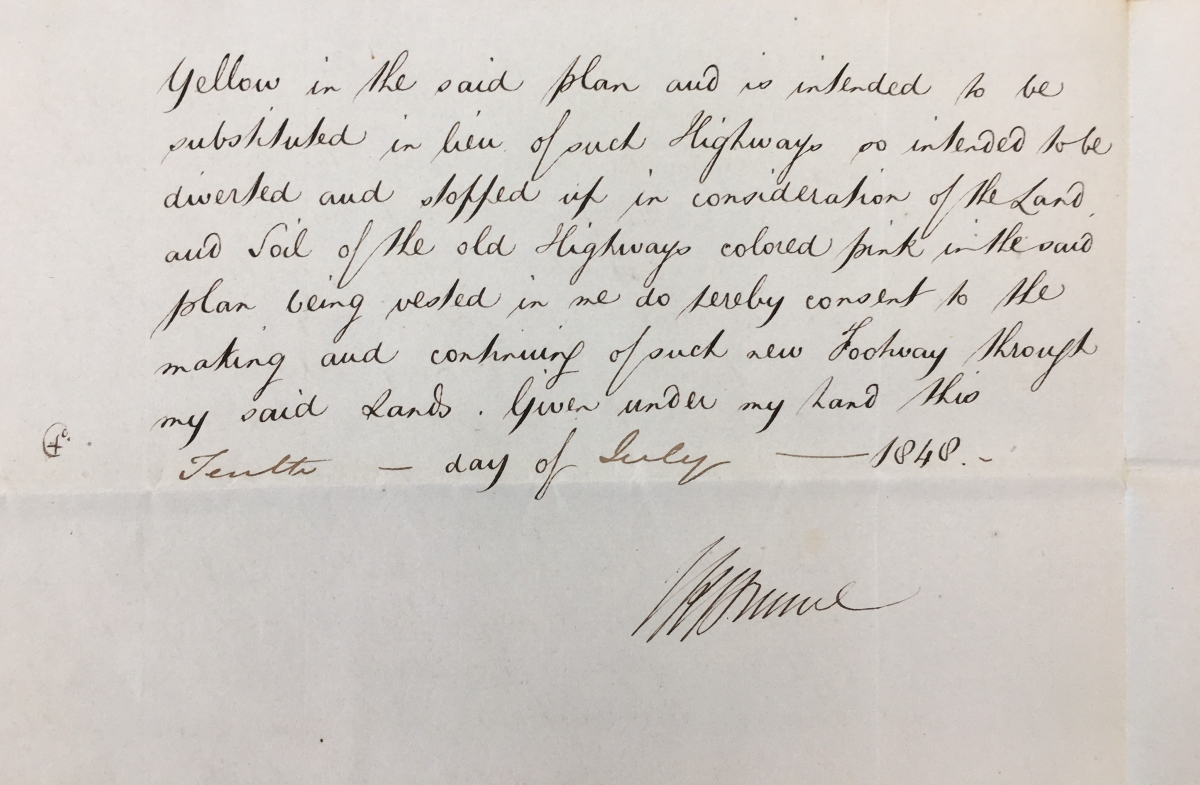 Yellow in the said plan and is intended to be
substituted in lieu of such Highways so intended to be
diverted and stopped up in consideration of the Land
and Soil of the old Highways colored pink in the said
plan being vested in me do hereby consent to the
making and continuing of such new Footway through
my said Lands. Given under my hand this
Tenth — day of July — 1848. -
I K Brunel